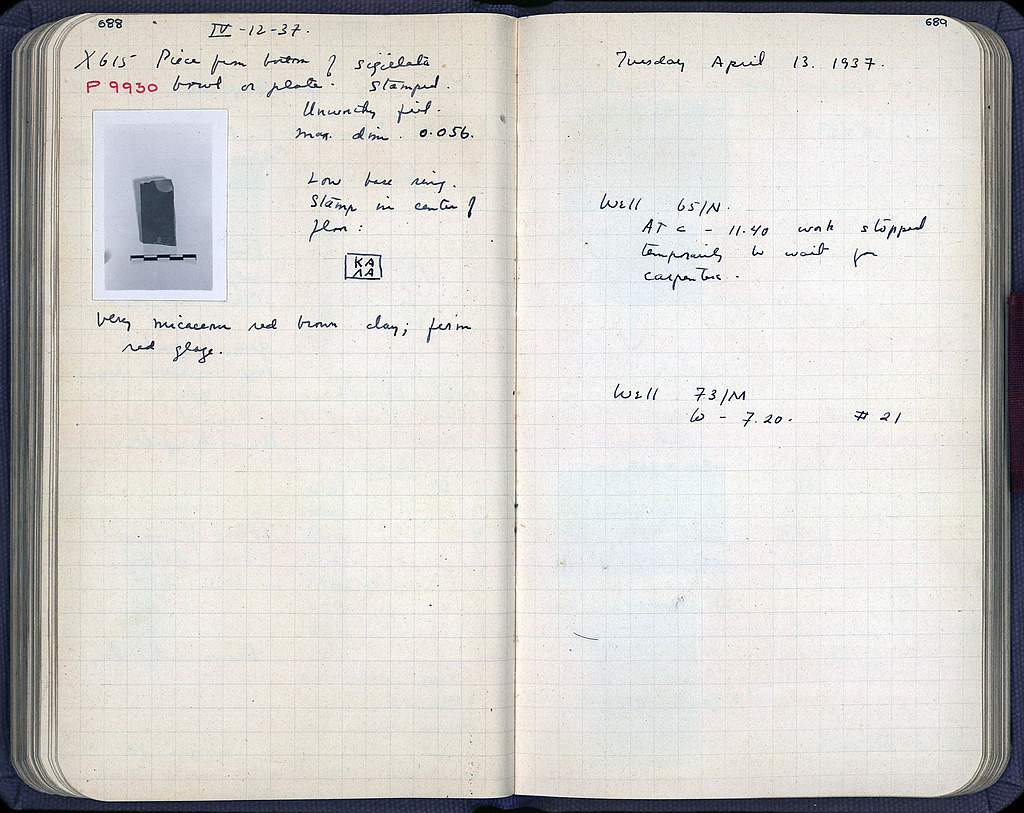 688
IV-12-37.
X615 Piece from bottom of sigillata
P 9930 bowl or plate. Stamped.
max. dim. 0.056.
Low base ring.
Stamp in center of
floor:
ΚΑ
ΛΑ
Very micaceous red brown clay; firm
red glaze.
689
Tuesday April 13. 1937.
Well 65/N.
AT c - 11.40 work stopped
temporarily to wait for
carpenters.
Well 73/M
W - 7.20. # 21